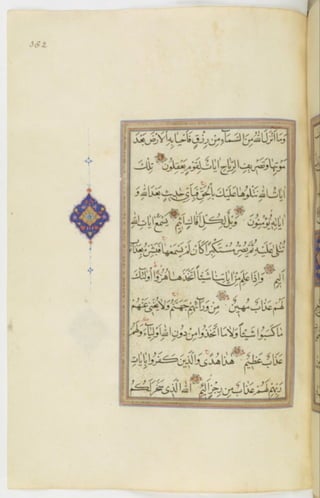 362
وما انزل الله من السماء من رزق فاحيا به الارض بعد
موتها وتصريف الرياح ايات لقوم يعقلون تلك
ايات الله نتلوها عليك بالحق فباي حديث بعد الله و
اياته يؤمنون ويل لكل افاك اثيم يسمع ايات الله
تتلى عليه ثم يصر مستكبرا كان لم يسمعها فبشره بعذاب
اليم واذا علم من اياتنا شيئا اتخذها هزوا اولئك
لهم عذاب مهين من ورائهم جهنم ولا يغني عنهم
ما كسبوا شيئا ولا ما اتخذوا من دون الله اولياء ولهم
عذاب عظيم هذا هدى والذين كفروا بايات
ربهم لهم عذاب من رجز اليم الله الذي سخر لكم